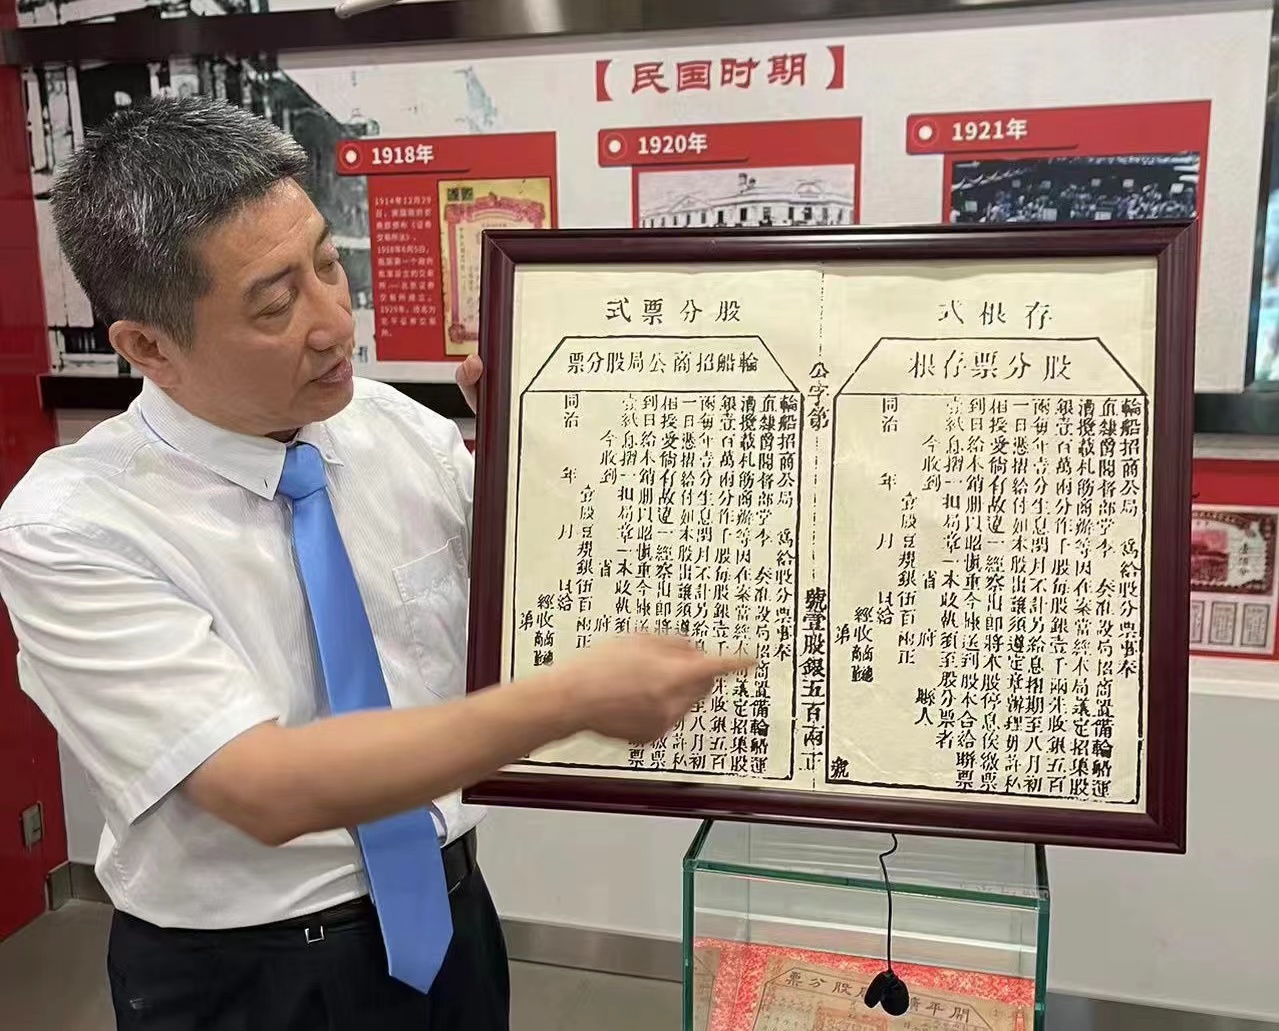 【民国时期】
1918年
1914年12月29
1920年
1921年
存根式
股分票存根
輪船招商公局 爲給股分票事奉
直隸爵閣督部堂李 奏准設局招商置備輪船運
漕攬載札飭商辦等因在案當經本局議定招集股
銀壹百萬兩分作千股每股銀壹千兩先收銀五百
兩每年壹分生息閏月不計另給息摺期至八月初
一日憑摺給付如本股出讓須遵定章辦理毋許私
相授受倘有故違一經察出即將本股停息俟繳票
到日給本銷册以昭慎重今據送到股本合給聯票
壹紙息摺一扣局章一本收執須至股分票者
今收到 省 府 縣人
壹股豆規銀伍百兩正
同治 年 月 日給
經收商總
第 號
公字第 號壹股銀五百兩正
股分票式
輪船招商公局股分票
輪船招商公局 爲給股分票事奉
直隸爵閣督部堂李 奏准設局招商置備輪船運
漕攬載札飭商辦等因在案當經本局議定招集股
銀壹百萬兩分作千股每股銀壹千兩先收銀五百
兩每年壹分生息閏月不計另給息 至八月初
一日憑摺給付如本股出讓須遵 毋許私
相授受倘有故違一經察出即將 繳票
到日給本銷册以昭慎重今據送 聯票
壹紙息摺一扣局章一本收執須
今收到 省 府
壹股豆規銀伍百兩正
同治 年 月 日給
經收商總
第
股分票
開平